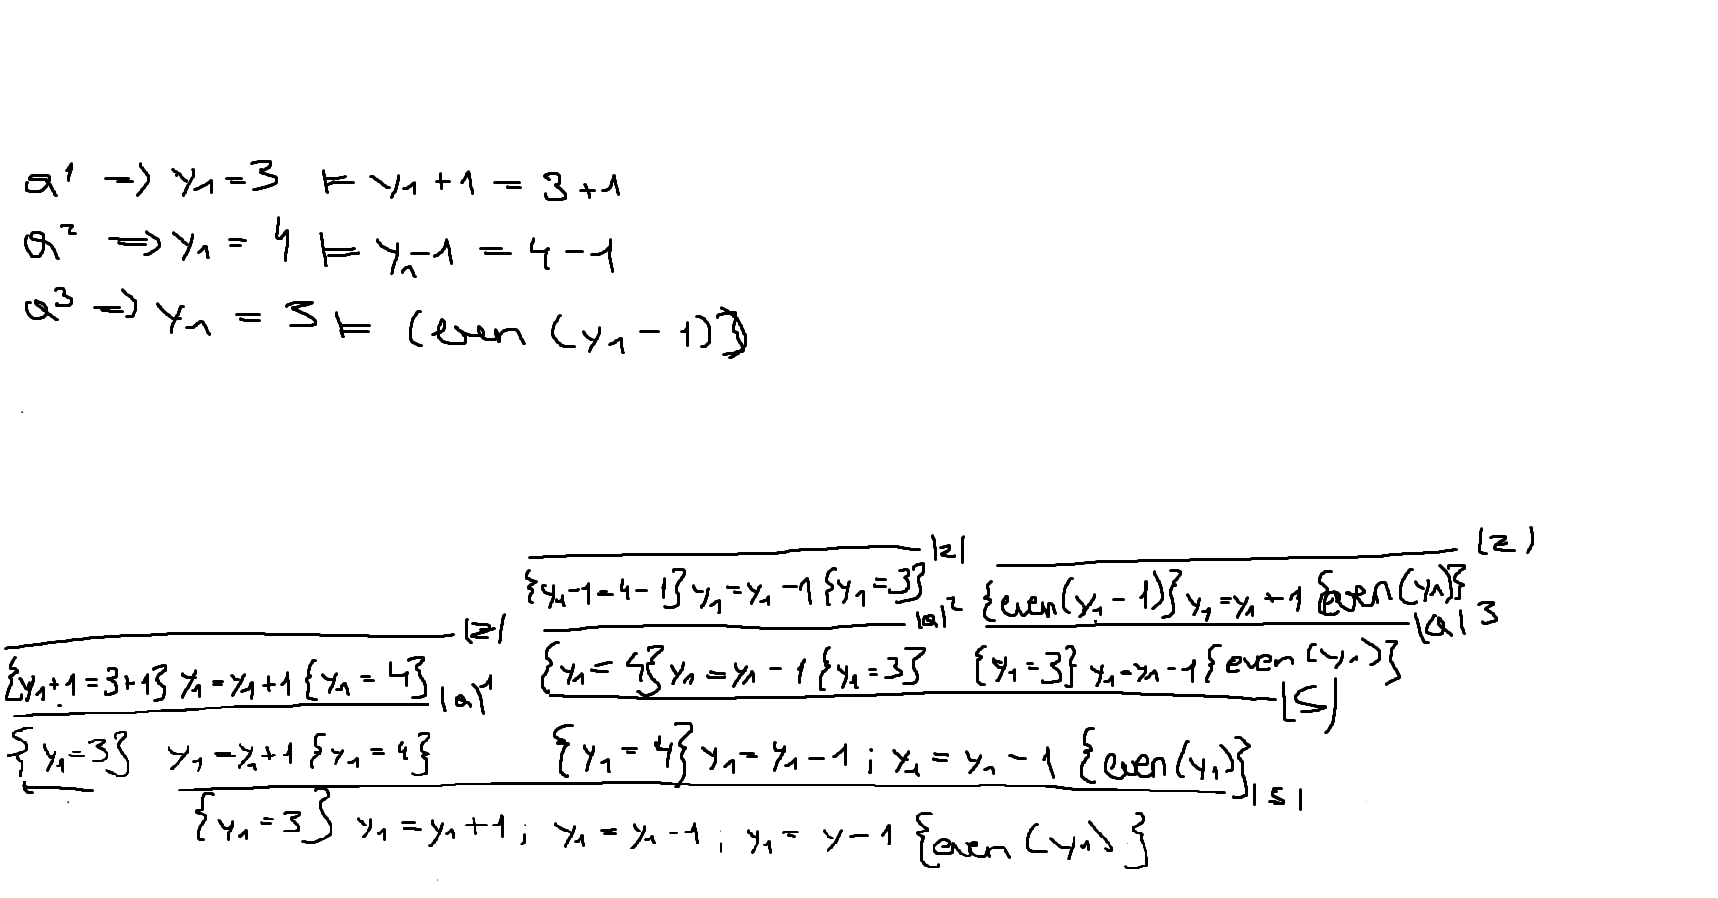 a¹ => y₁ = 3 ⊨ y₁ + 1 = 3 + 1
a² => y₁ = 4 ⊨ y₁ - 1 = 4 - 1
a³ => y₁ = 3 ⊨ (even (y₁ - 1)}
|z| |z)
{y₁-1=4-1} y₁=y₁-1 {y₁=3} {even(y₁-1)} y₁=y₁+1 {even(y₁)}
|z| |a|² |a| 3
{y₁+1=3+1} y₁=y₁+1 {y₁=4} {y₁=4} y₁=y₁-1 {y₁=3} {y₁=3} y₁=y₁-1 {even(y₁)}
|a|¹ |S)
{y₁=3} y₁=y₁+1 {y₁=4} {y₁=4} y₁=y₁-1 ; y₁=y₁-1 {even(y₁)}
|S|
{y₁=3} y₁=y₁+1 ; y₁=y₁-1 ; y₁=y-1 {even(y₁)}